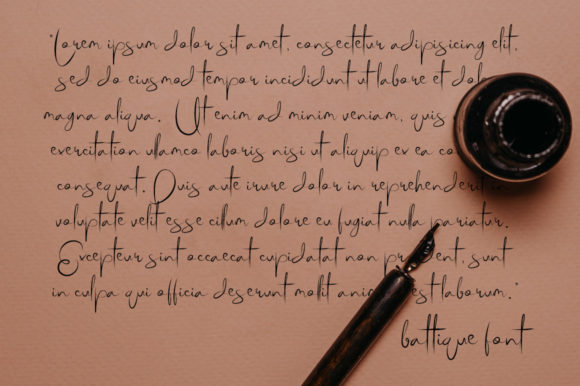 "Lorem ipsum dolor sit amet, consectetur adipisicing elit,
sed do eiusmod tempor incididunt ut labore et dol
magna aliqua. Ut enim ad minim veniam, quis
exercitation ullamco laboris nisi ut aliquip ex ea co
consequat. Duis aute irure dolor in reprehenderit in
voluptate velit esse cillum dolore eu fugiat nulla pariatur.
Excepteur sint occaecat cupidatat non pr dent, sunt
in culpa qui officia deserunt mollit anim est laborum."
battique font